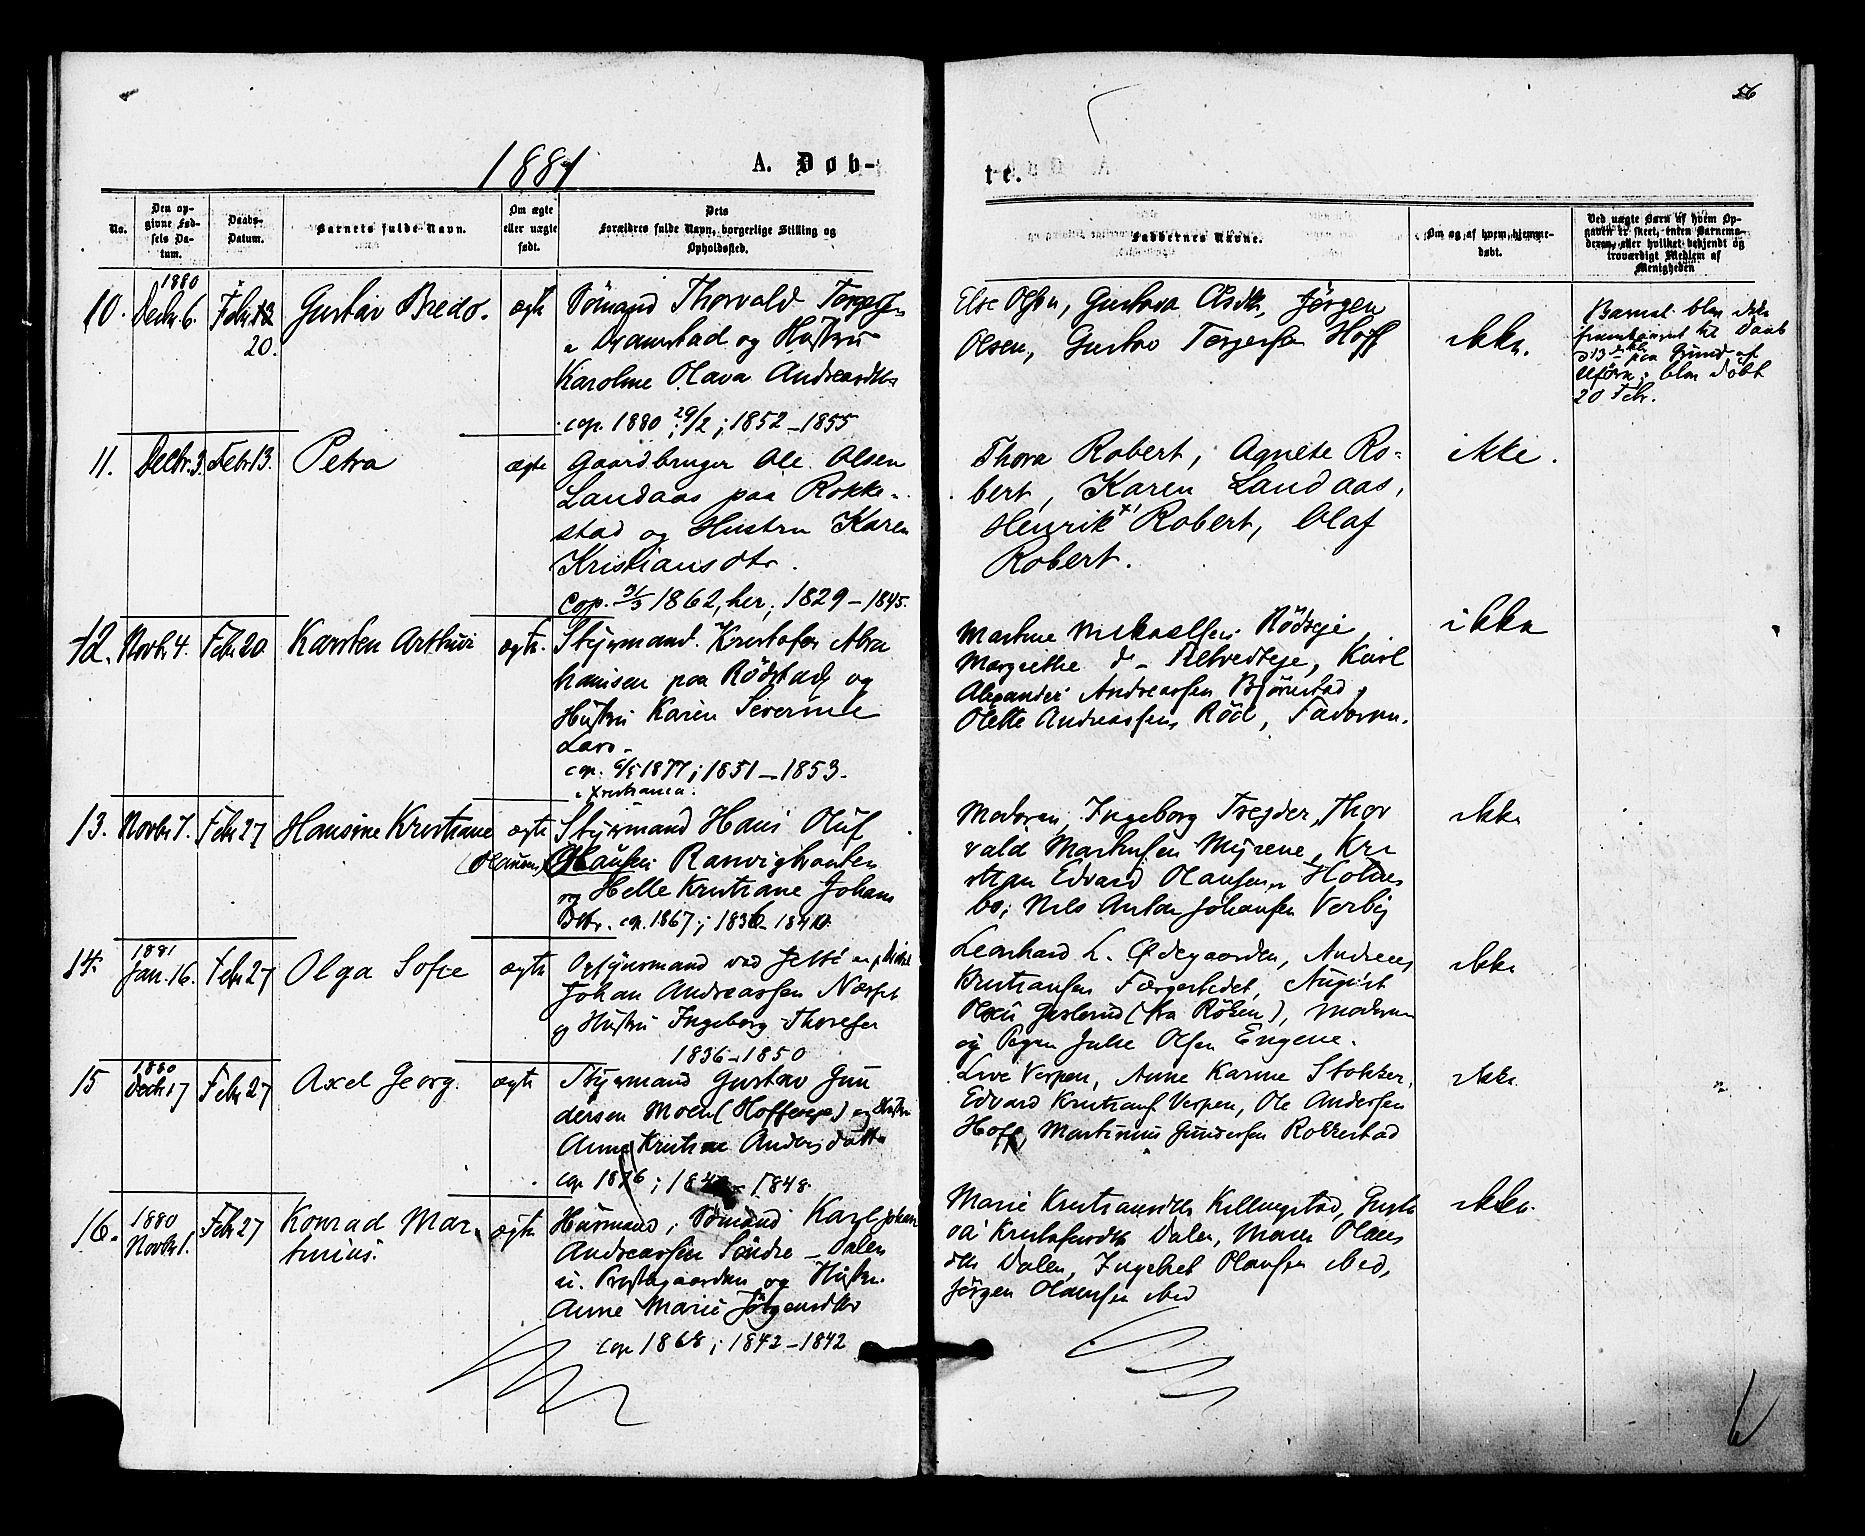 56
1881
A. Døb-
te.
No.
Den op-
givne Fød-
sels Da-
tum.
Daabs-
Datum.
Barnets fulde Navn.
Om ægte
eller uægte
født.
Dets
Forældres fulde Navn, borgerlige Stilling og
Opholdssted.
Faddernes Navne.
Om og af hvem hjemme-
døbt.
Ved uægte Barn af hvem Op-
gaven er skeet, enten Barnemo-
deren, eller hvilket bekjendt og
troværdigt Medlem af
Menigheden
1880
10. Decbr 6. Febr 13
20.
Gustav Bredo.
ægte
Sömand Thorvald Torgers.
Dramstad og Hustru
Karoline Olava Andreasdtr
cop. 1880 29/2; 1852 - 1855
Else Olsen, Gustava Jörgen
Olsen, Gustav Torgersen Hoff
ikke.
Barnet blev ikke
fremkommet til Daab
d 13 paa Grund af
Uföre; blev döbt
20 Febr.
11. Decbr. 3. Febr 13. Petra ægte
Gaardbruger Ole Olsen
Landaas paa Rokke-
stad og Hustru Karen
Kristiansdtr.
Cop. 1862, her; 1829 - 1845.
Thora Robert, Agnete Ro-
bert, Karen Landaas,
Henrik Robert, Olaf
Robert.
ikke.
12. Novbr 4. Febr 20 Karsten Arthur ægte.
Styrmand Kristofer Abra
hamsen paa Rödstad og
Hustru Karen Severine
Lars-
cop. 6/5 1877; 1851 - 1853.
i Kristiania.
Martine Mikaelsen Rödseje,
Margrethe d- Tveteseje, Karl
Alexander Andreassen Björnstad,
Olette Andreassen Röd, Faderen.
ikke
13. Novbr 7. Febr 27 Hansine Kristiane ægte
(Olausen)
Styrmand Hans Oluf
Olausen Ranvigbraaten
og Helle Kristiane Johans
Datr. cop. 1867; 1836 - 1840
Moderen, Ingeborg Tregder, Thor
vald Marthisen Myrene, Kri
stian Edvard Olausen Holmes
bo; Nils Anton Johansen Verby
ikke
1881
14. Jan. 16. Febr 27 Olga Sofie ægte
Opsynsmand ved
Johan Andreassen Næsset
og Hustru Ingeborg Thoresen
1836 - 1850
Leonhard L. Ødegaarden, Andreas
Kristiansen Færgestedet, August
Olsen Gjeslerud (fra Röken), Moderen
og Pigen Julie Olsen Engene.
ikke
1880
15 Decbr 17 Febr 27 Axel Georg. ægte
Styrmand Gustav Gun
dersen Moen (Hoffseje) og Hustru
Anne Kristine Andersdatter
cop 1876; - 1848.
Live Verpen, Anne Karine Stokker,
Edvard Kristians. Verpen, Ole Andersen
Hoff, Martinius Gundersen Rokkestad
ikke
1880
16. Novbr 1. Febr 27 Konrad Mar
tinius. ægte
Husmand, Sömand Karl Johan
Andreassen Söndre - Dalen
u. Prestegaarden og Hustru
Anne Marie Jörgensdtr
cop 1868; 1842 - 1842
Marie Kristiansdtr Killingstad, Gusta
va Kristofersdtr Dalen, Maren Olaus
dtr Dalen, Ingebret Olausen ibid,
Jörgen Olausen ibid
ikke.